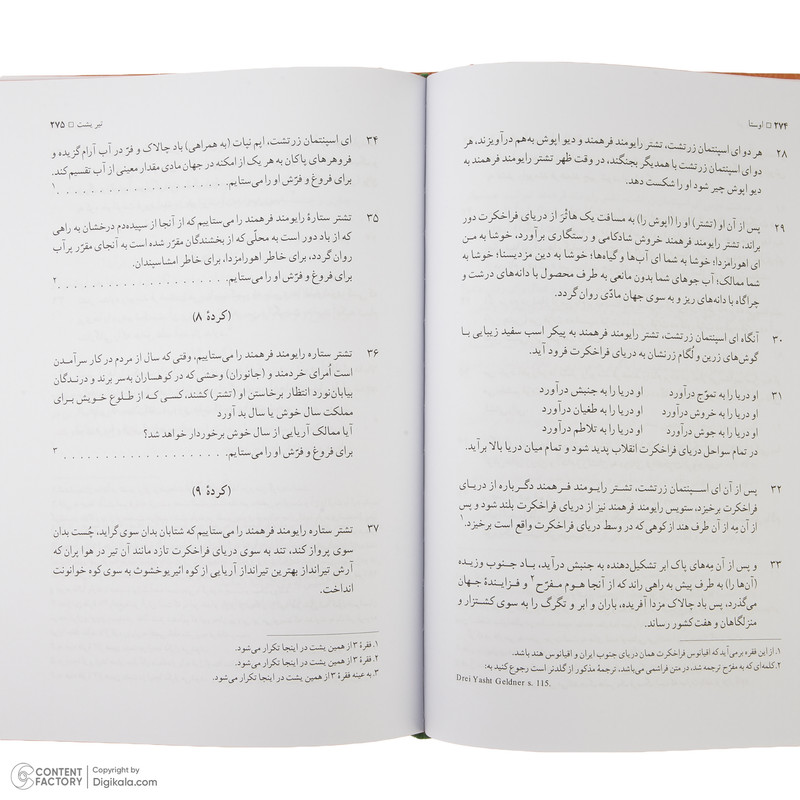 ۲۷۴ □ اوستا
۲۸ هر دو ای اسپنتمان زرتشت، تشتر رایومند فرهمند و دیو اپوش به‌هم درآویزند، هر
دو ای اسپنتمان زرتشت با همدیگر بجنگند، در وقت ظهر تشتر رایومند فرهمند به
دیو اپوش چیر شود او را شکست دهد.
۲۹ پس از آن او (تشتر) او را (اپوش را) به مسافت یک هاثْرَ از دریای فراخکرت دور
براند، تشتر رایومند فرهمند خروش شادکامی و رستگاری برآورد، خوشا به من
ای اهورامزدا؛ خوشا به شما ای آب‌ها و گیاه‌ها؛ خوشا به دین مزدیسنا؛ خوشا به
شما ممالک؛ آب جوهای شما بدون مانعی به طرف محصول با دانه‌های درشت و
چراگاه با دانه‌های ریز و به سوی جهان مادّی روان گردد.
۳۰ آنگاه ای اسپنتمان زرتشت، تشتر رایومند فرهمند به پیکر اسب سفید زیبایی با
گوش‌های زرین و لُگام زرنشان به دریای فراخکرت فرود آید.
۳۱ او دریا را به تموّج درآورد او دریا را به جنبش درآورد
او دریا را به خروش درآورد او دریا را به طغیان درآورد
او دریا را به جوش درآورد او دریا را به تلاطم درآورد
در تمام سواحل دریای فراخکرت انقلاب پدید شود و تمام میان دریا بالا برآید.
۳۲ پس از آن ای اسپنتمان زرتشت، تشتر رایومند فرهمند دگرباره از دریای
فراخکرت برخیزد، ستویس رایومند فرهمند نیز از دریای فراخکرت بلند شود و پس
از آن مِه از آن طرف هند از کوهی که در وسط دریای فراخکرت واقع است برخیزد.۱
۳۳ و پس از آن مِه‌های پاک ابر تشکیل‌دهنده به جنبش درآید، باد جنوب وزیده
(آن‌ها را) به طرف پیش به راهی راند که از آنجا هوم مفرّح۲ و فزایندهٔ جهان
می‌گذرد، پس باد چالاک مزدا آفریده، باران و ابر و تگرگ را به سوی کشتزار و
منزلگاهان و هفت‌کشور رساند.
۱. از این فقره برمی‌آید که اقیانوس فراخکرت همان دریای جنوب ایران و اقیانوس هند باشد.
۲. کلمه‌ای که به مفرّح ترجمه شد، در متن فراشمی می‌باشد، ترجمهٔ مذکور از گلدنر است رجوع کنید به:
Drei Yasht Geldner s. 115.
تیر یشت □ ۲۷۵
۳۴ ای اسپنتمان زرتشت، اپم نپات (به همراهی) باد چالاک و فرّ در آب آرام گزیده و
فروهرهای پاکان به هر یک از امکنه در جهان مادی مقدار معینی از آب تقسیم کند.
برای فروغ و فرّش او را می‌ستایم. . . . . . . . . . . . . . . . . . . . ۱
۳۵ تشتر ستارهٔ رایومند فرهمند را می‌ستاییم که از آنجا از سپیده‌دم درخشان به راهی
که از باد دور است به محلّی که از بخشندگان مقرّر شده است به آنجای مقرّر پرآب
روان گردد، برای خاطر اهورامزدا، برای خاطر امشاسپندان.
برای فروغ و فرّش او را می‌ستایم. . . . . . . . . . . . . . . . . . . . ۲
(کردهٔ ۸)
۳۶ تشتر ستاره رایومند فرهمند را می‌ستاییم، وقتی که سال از مردم در کار سرآمدن
است اُمرای خردمند و (جانوران) وحشی که در کوهساران به‌سر برند و درندگان
بیابان‌نورد انتظار برخاستن او (تشتر) کشند، کسی که از طلوع خویش برای
مملکت سال خوش یا سال بد آورد
آیا ممالک آریایی از سال خوش برخوردار خواهد شد؟
برای فروغ و فرّش او را می‌ستایم. . . . . . . . . . . . . . . . . . . . ۳
(کردهٔ ۹)
۳۷ تشتر ستاره رایومند فرهمند را می‌ستاییم که شتابان بدان سوی گراید، چُست بدان
سوی پرواز کند، تند به سوی دریای فراخکرت تازد مانند آن تیر در هوا پران که
آرش تیرانداز بهترین تیرانداز آریایی از کوه ائیریوخشوث به سوی کوه خوانونت
انداخت.
۱. فقرهٔ ۳ از همین یشت در اینجا تکرار می‌شود.
۲. فقرهٔ ۳ از همین یشت در اینجا تکرار می‌شود.
۳. به عینه فقرهٔ ۳ از همین یشت در اینجا تکرار می‌شود.
CONTENT FACTORY
Copyright by
Digikala.com